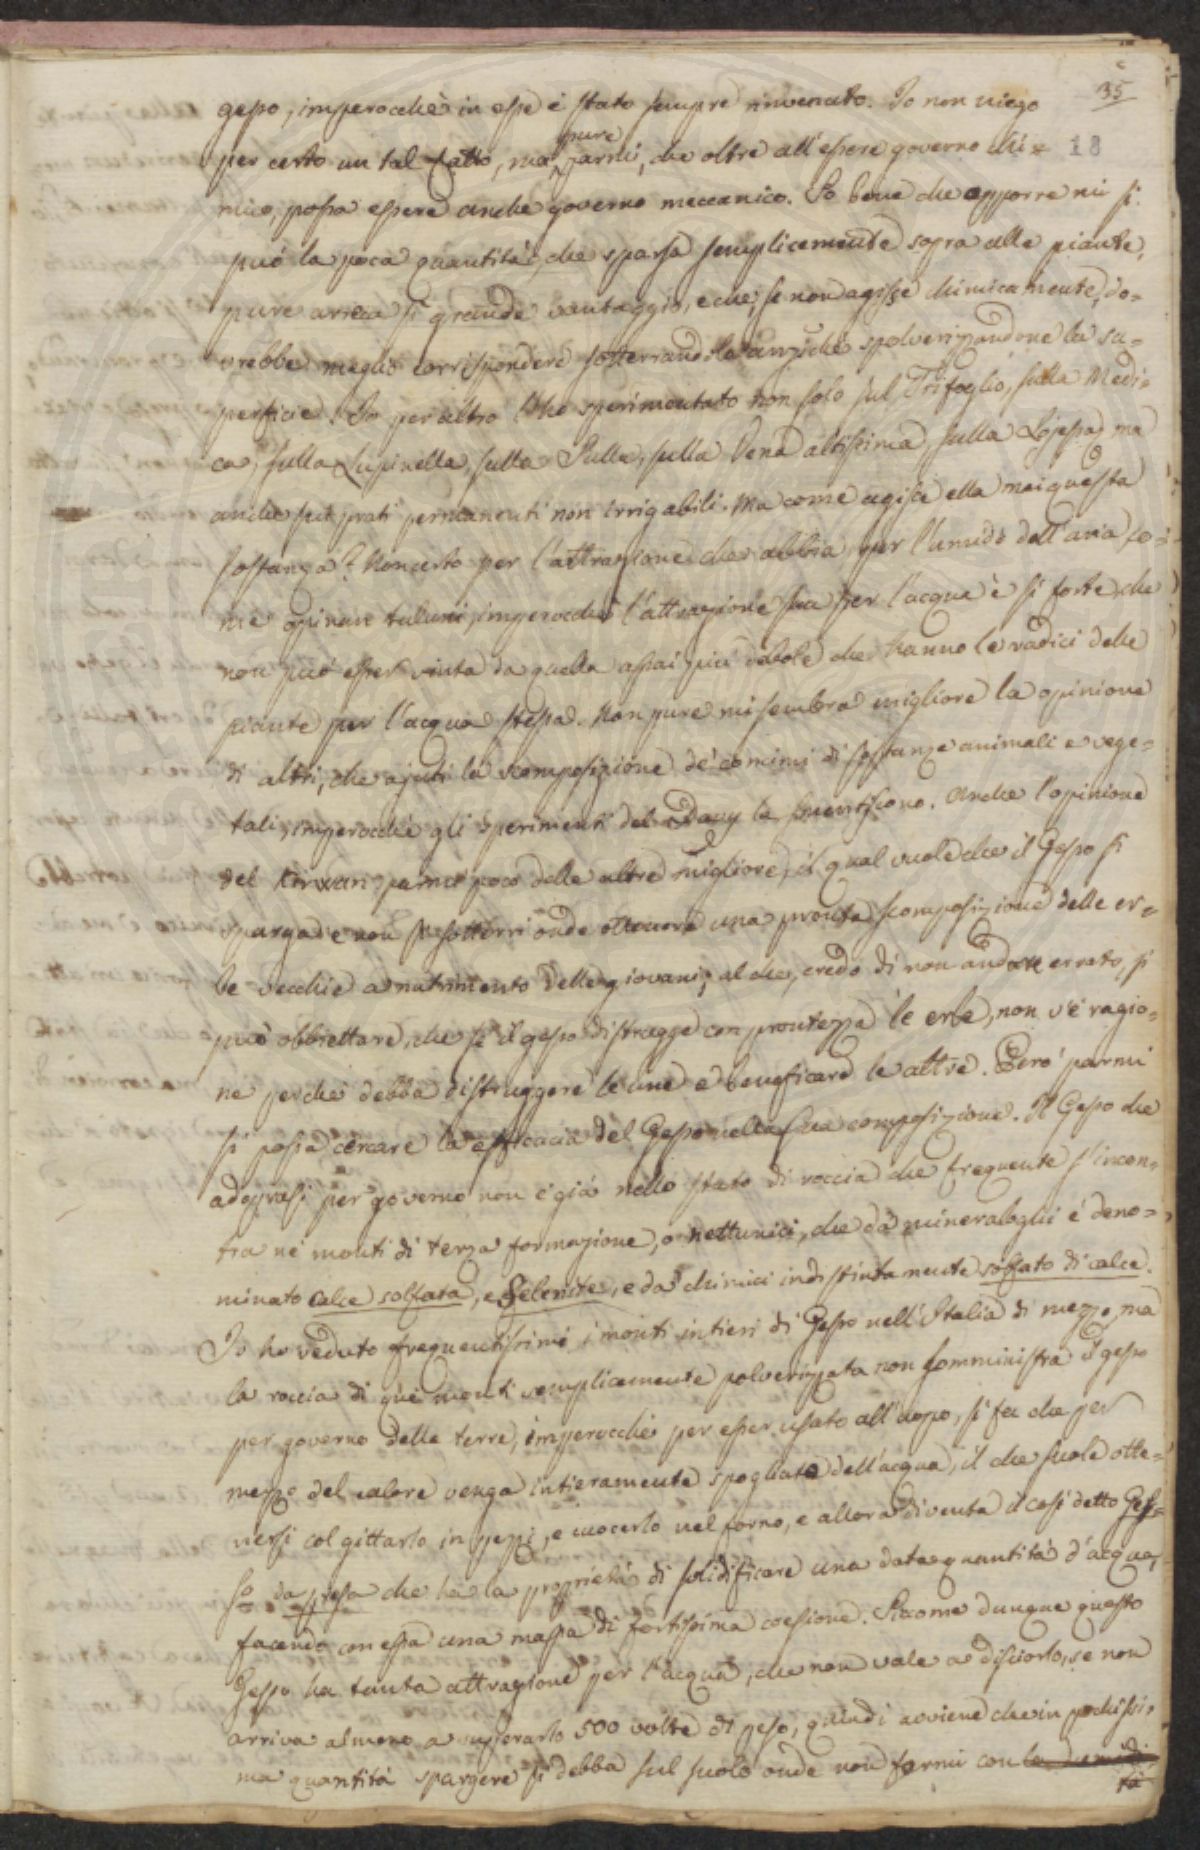 35
18
gesso, imperocchè in esse è stato sempre rinvenuto. Io non niego
per certo un tal fatto, ma pure parmi, che oltre all'essere governo chi=
mico, possa essere anche governo meccanico. So bene che opporre mi si
può la poca quantità, che sparsa semplicemente sopra alle piante,
pure arreca sì grande vantaggio, e che, se non agisse chimicamente, do=
vrebbe meglio corrispondere sotterrandolo anzichè spolverizzandone la su=
perficie. Io per altro l'ho sperimentato non solo sul Trifoglio, sulla Medi=
ca, sulla Lupinella, sulla Sulla, sulla Vena altissima, sulla Lojessa, ma
anche sui prati permanenti non irrigabili. Ma come agisce ella mai questa
sostanza? Non certo per l'attrazione che abbia per l'umido dell'aria, co=
me opinan taluni, imperocchè l'attrazione sua per l'acqua è sì forte, che
non può esser vinta da quella assai più debole che hanno le radici delle
piante per l'acqua stessa. Non pure mi sembra migliore la opinione
di altri, che ajuti la scomposizione de' concimi di sostanze animali e vege=
tali, imperocchè gli sperimenti del Davy la smentiscono. Anche l'opinione
del Kirwan parmi poco delle altre migliore, il qual vuole che il Gesso si
sparga e non si sotterri onde ottenere una pronta scomposizione delle er=
be vecchie a nutrimento delle giovani; al che, credo di non andare errato, si
può obbiettare, che se il gesso distrugge con prontezza le erbe, non v'è ragio=
ne perchè debba distruggere le une e beneficare le altre. Però parmi
si possa cercare la efficacia del Gesso nella sua composizione. Il Gesso che
adoprasi per governo non è già nello stato di roccia che frequente s'incon=
tra ne' monti di terza formazione, o nettunici, che da' mineraloghi è deno=
minato calce solfata, e Selenite, e da' chimici indistintamente solfato di calce.
Io ho veduto frequentissimi i monti intieri di Gesso nell'Italia di mezzo, ma
la roccia di que' monti semplicemente polverizzata non somministra il gesso
per governo delle terre, imperocchè per esser usato all'uopo, si fa che per
mezzo del calore venga intieramente spogliato dell'acqua, il che suole otte=
nersi col gittarlo in pezzi, e cuocerlo nel forno, e allora diventa il così detto Ges=
so da presa che ha la proprietà di solidificare una data quantità d'acqua,
facendo con essa una massa di fortissima coesione. Siccome dunque questo
Gesso ha tanta attrazione per l'acqua, che non vale a disciorlo, se non
arriva almeno a superarlo 500 volte di peso, quindi avviene che in pochissi=
ma quantità spargere si debba sul suolo onde non formi con la umidi
tà